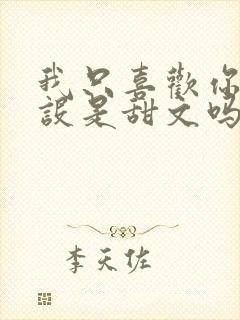 我只喜歡你
設是甜文吗
李天佐